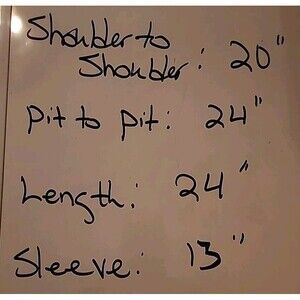 Shoulder to
Shoulder: 20"
Pit to pit: 24"
Length: 24"
Sleeve: 13"